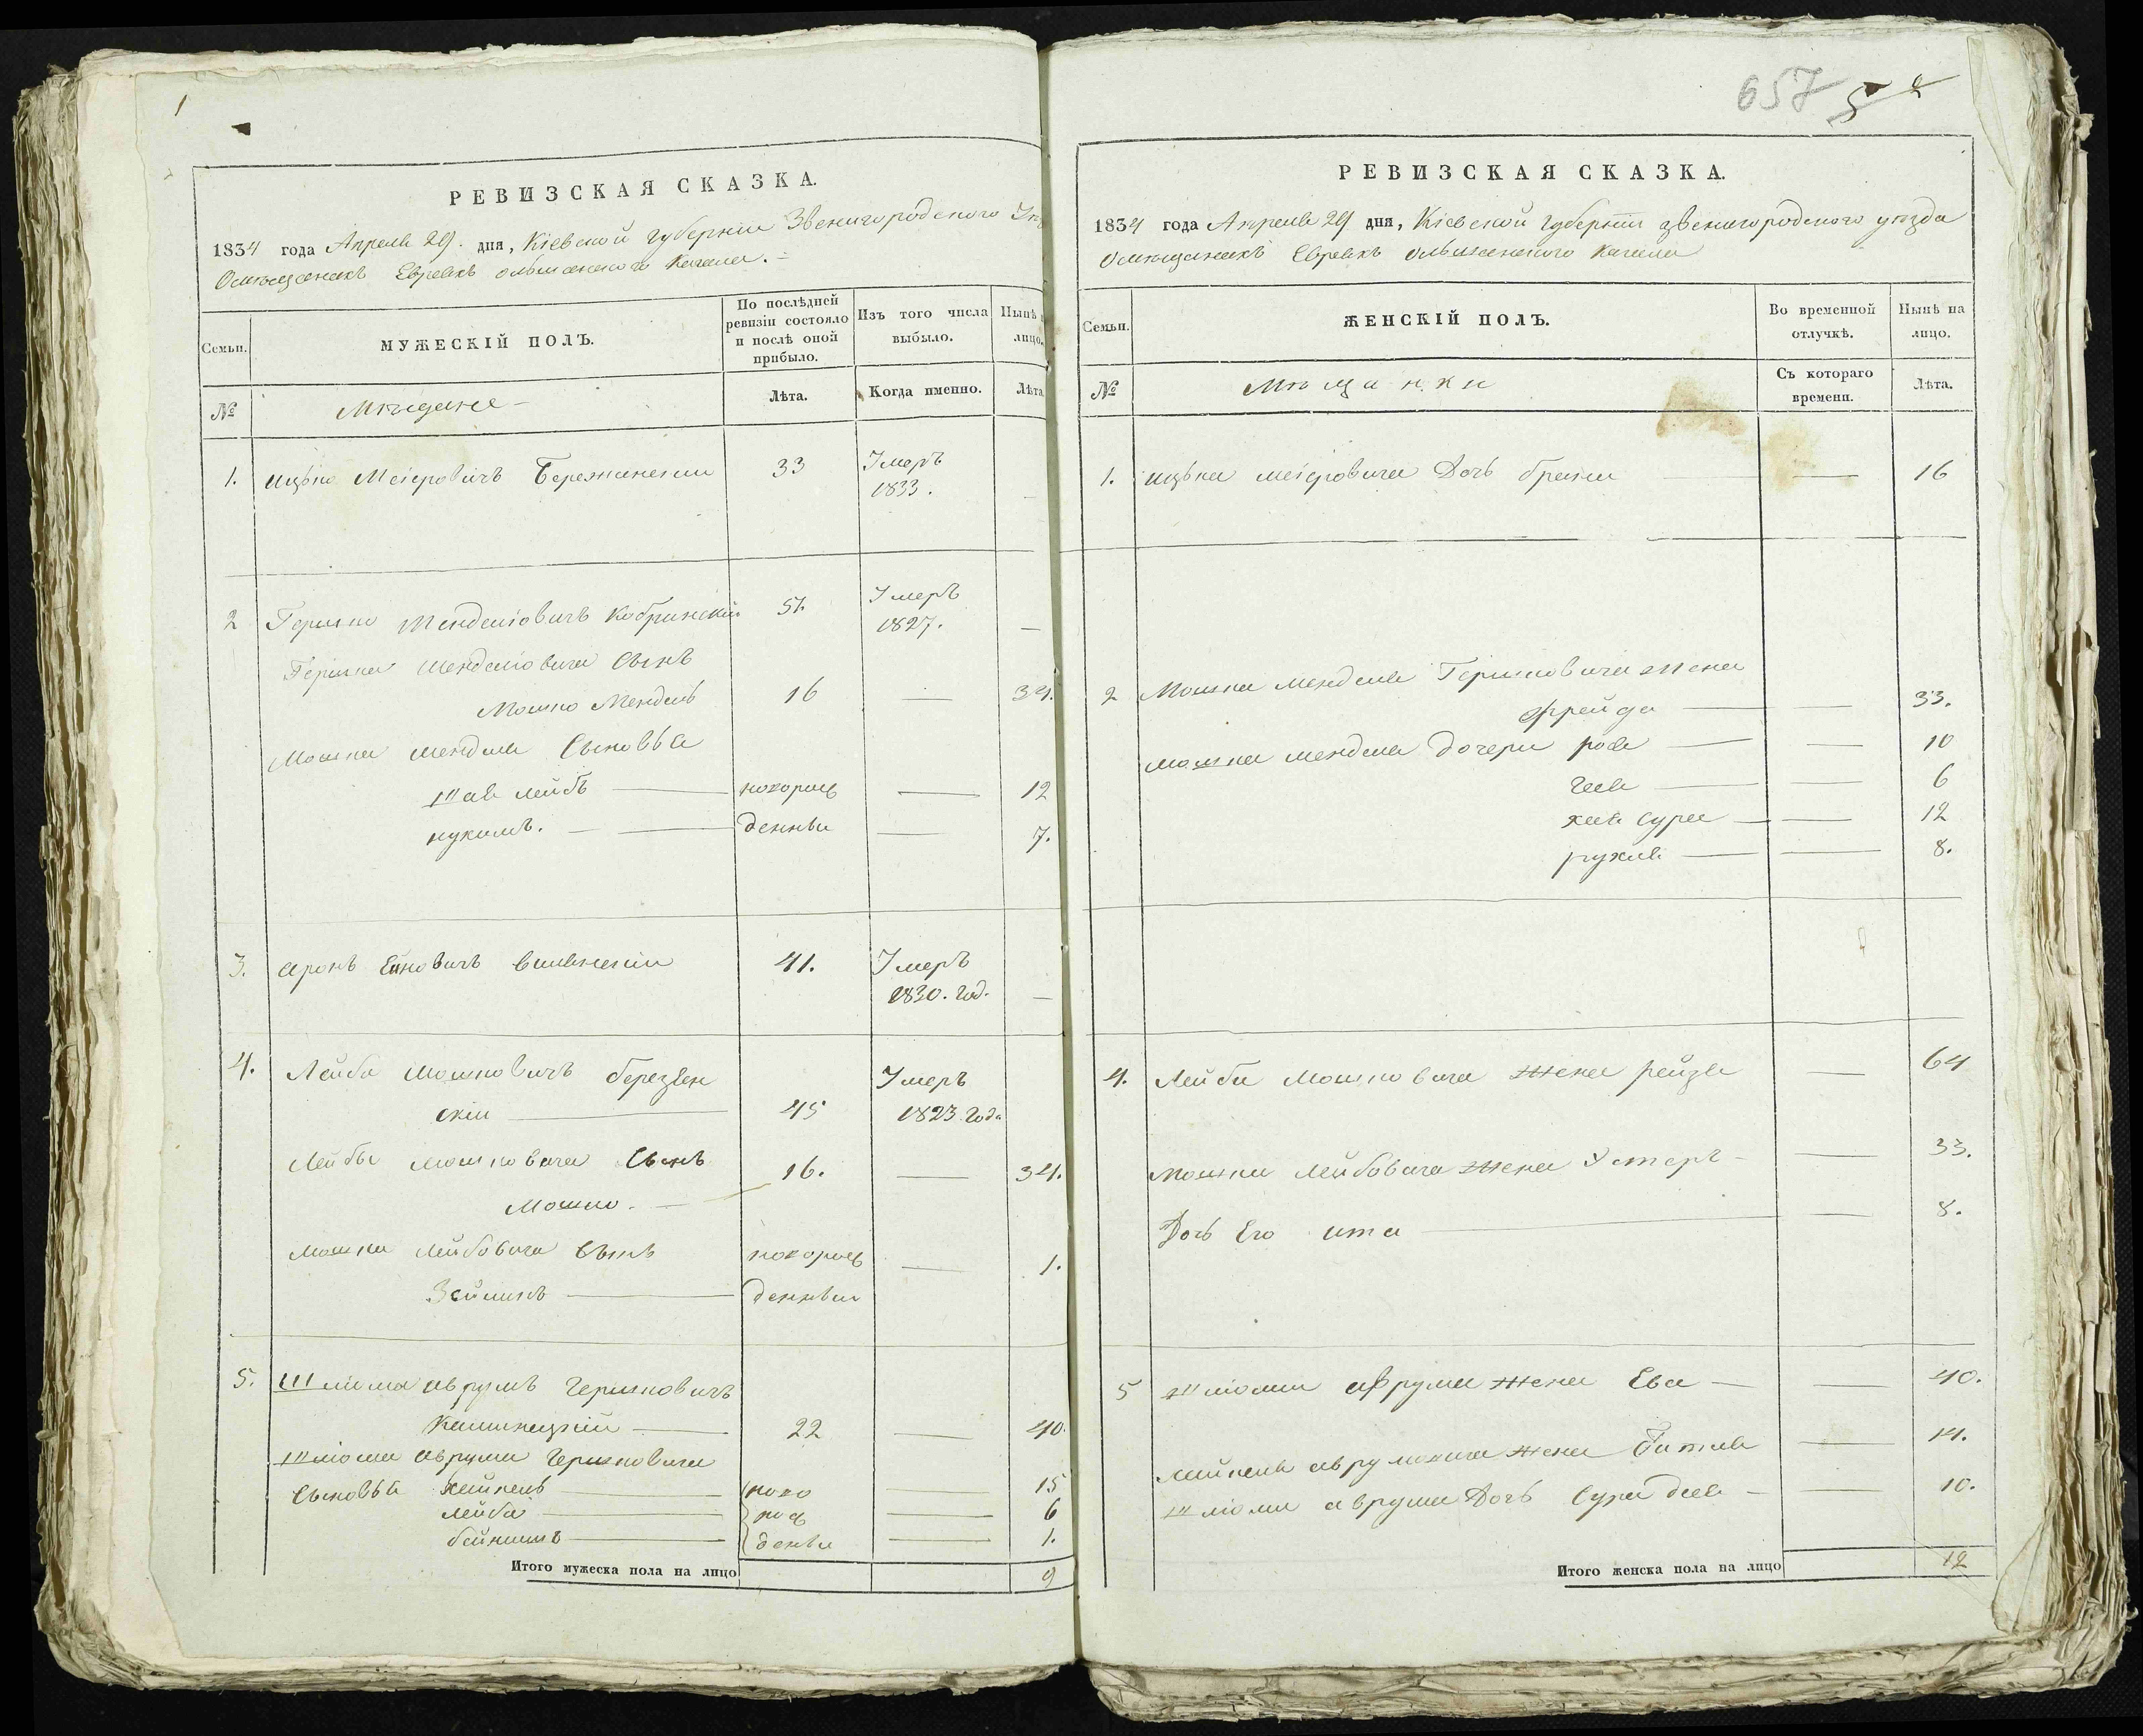 1
РЕВИЗСКАЯ СКАЗКА.
1834 года Апреля 29. дня, Кіевской губерніи Звенигородского
Омѣщанахъ Евреяхъ ольшанского Кагала.
Семьи.
МУЖЕСКІЙ ПОЛЪ.
По послѣдней ревизіи состояло и послѣ оной прибыло.
Изъ того числа выбыло.
Нынѣ
лицо.
№
Мѣщане
Лѣта.
Когда именно.
Лѣта
1. ицько Меіеровичъ Бережанскіи 33 Умеръ 1833.
2 Гершко Менделіовичъ Кобринскій 51. Умеръ 1827. —
Гершка Менделіовича Сынъ
Мошко Мендель 16 — 34.
Мошка Менделя Сыновья
Шая лейбъ — новорож — 12
нухимъ. — денныи — 7.
3. аронъ Ейновичъ виленскіи 41. Умеръ 1830. год. —
4. Лейба Мошковичъ березен
скіи — 45 Умеръ 1823. года
Лейбы мошковича Сынъ
Мошко. — 16. — 34.
мошка лейбовича Сынъ новорож — 1.
Зейликъ — денныи
5. Шлиома аврумъ гершковичъ
Камянецкіи — 22 — 40.
шліома аврума гершковича
Сыновья хейкель — ново — 15
лейба — рож — 6
бейнишъ — денны — 1.
Итого мужеска пола на лицо 9
657
РЕВИЗСКАЯ СКАЗКА.
1834 года Апреля 29 дня, Кіевской губерніи звенигородского уѣзда
Омѣщанахъ Евреяхъ ольшанского Кагала
Семьи.
ЖЕНСКІЙ ПОЛЪ.
Во временной отлучкѣ.
Нынѣ на лицо.
№
Мѣщанки
Съ котораго времени.
Лѣта.
1. ицька меіеровича Дочь — — 16
2 Мошка менделя Гершковича жена
фрейда — — 33.
мошка менделя дочери рося — — 10
— — 6
хая сура — — 12
рухля — — 8.
4. Лейбы Мошковича жена рейзя — 64
мошка лейбовича жена Эстеръ — — 33.
Дочь Его ита — — 8.
5 шліомы аврума жена Ева — — 40.
аврумовича жена Гитля — 14.
шліомы аврума Дочь Сура — — 10.
Итого женска пола на лицо 12